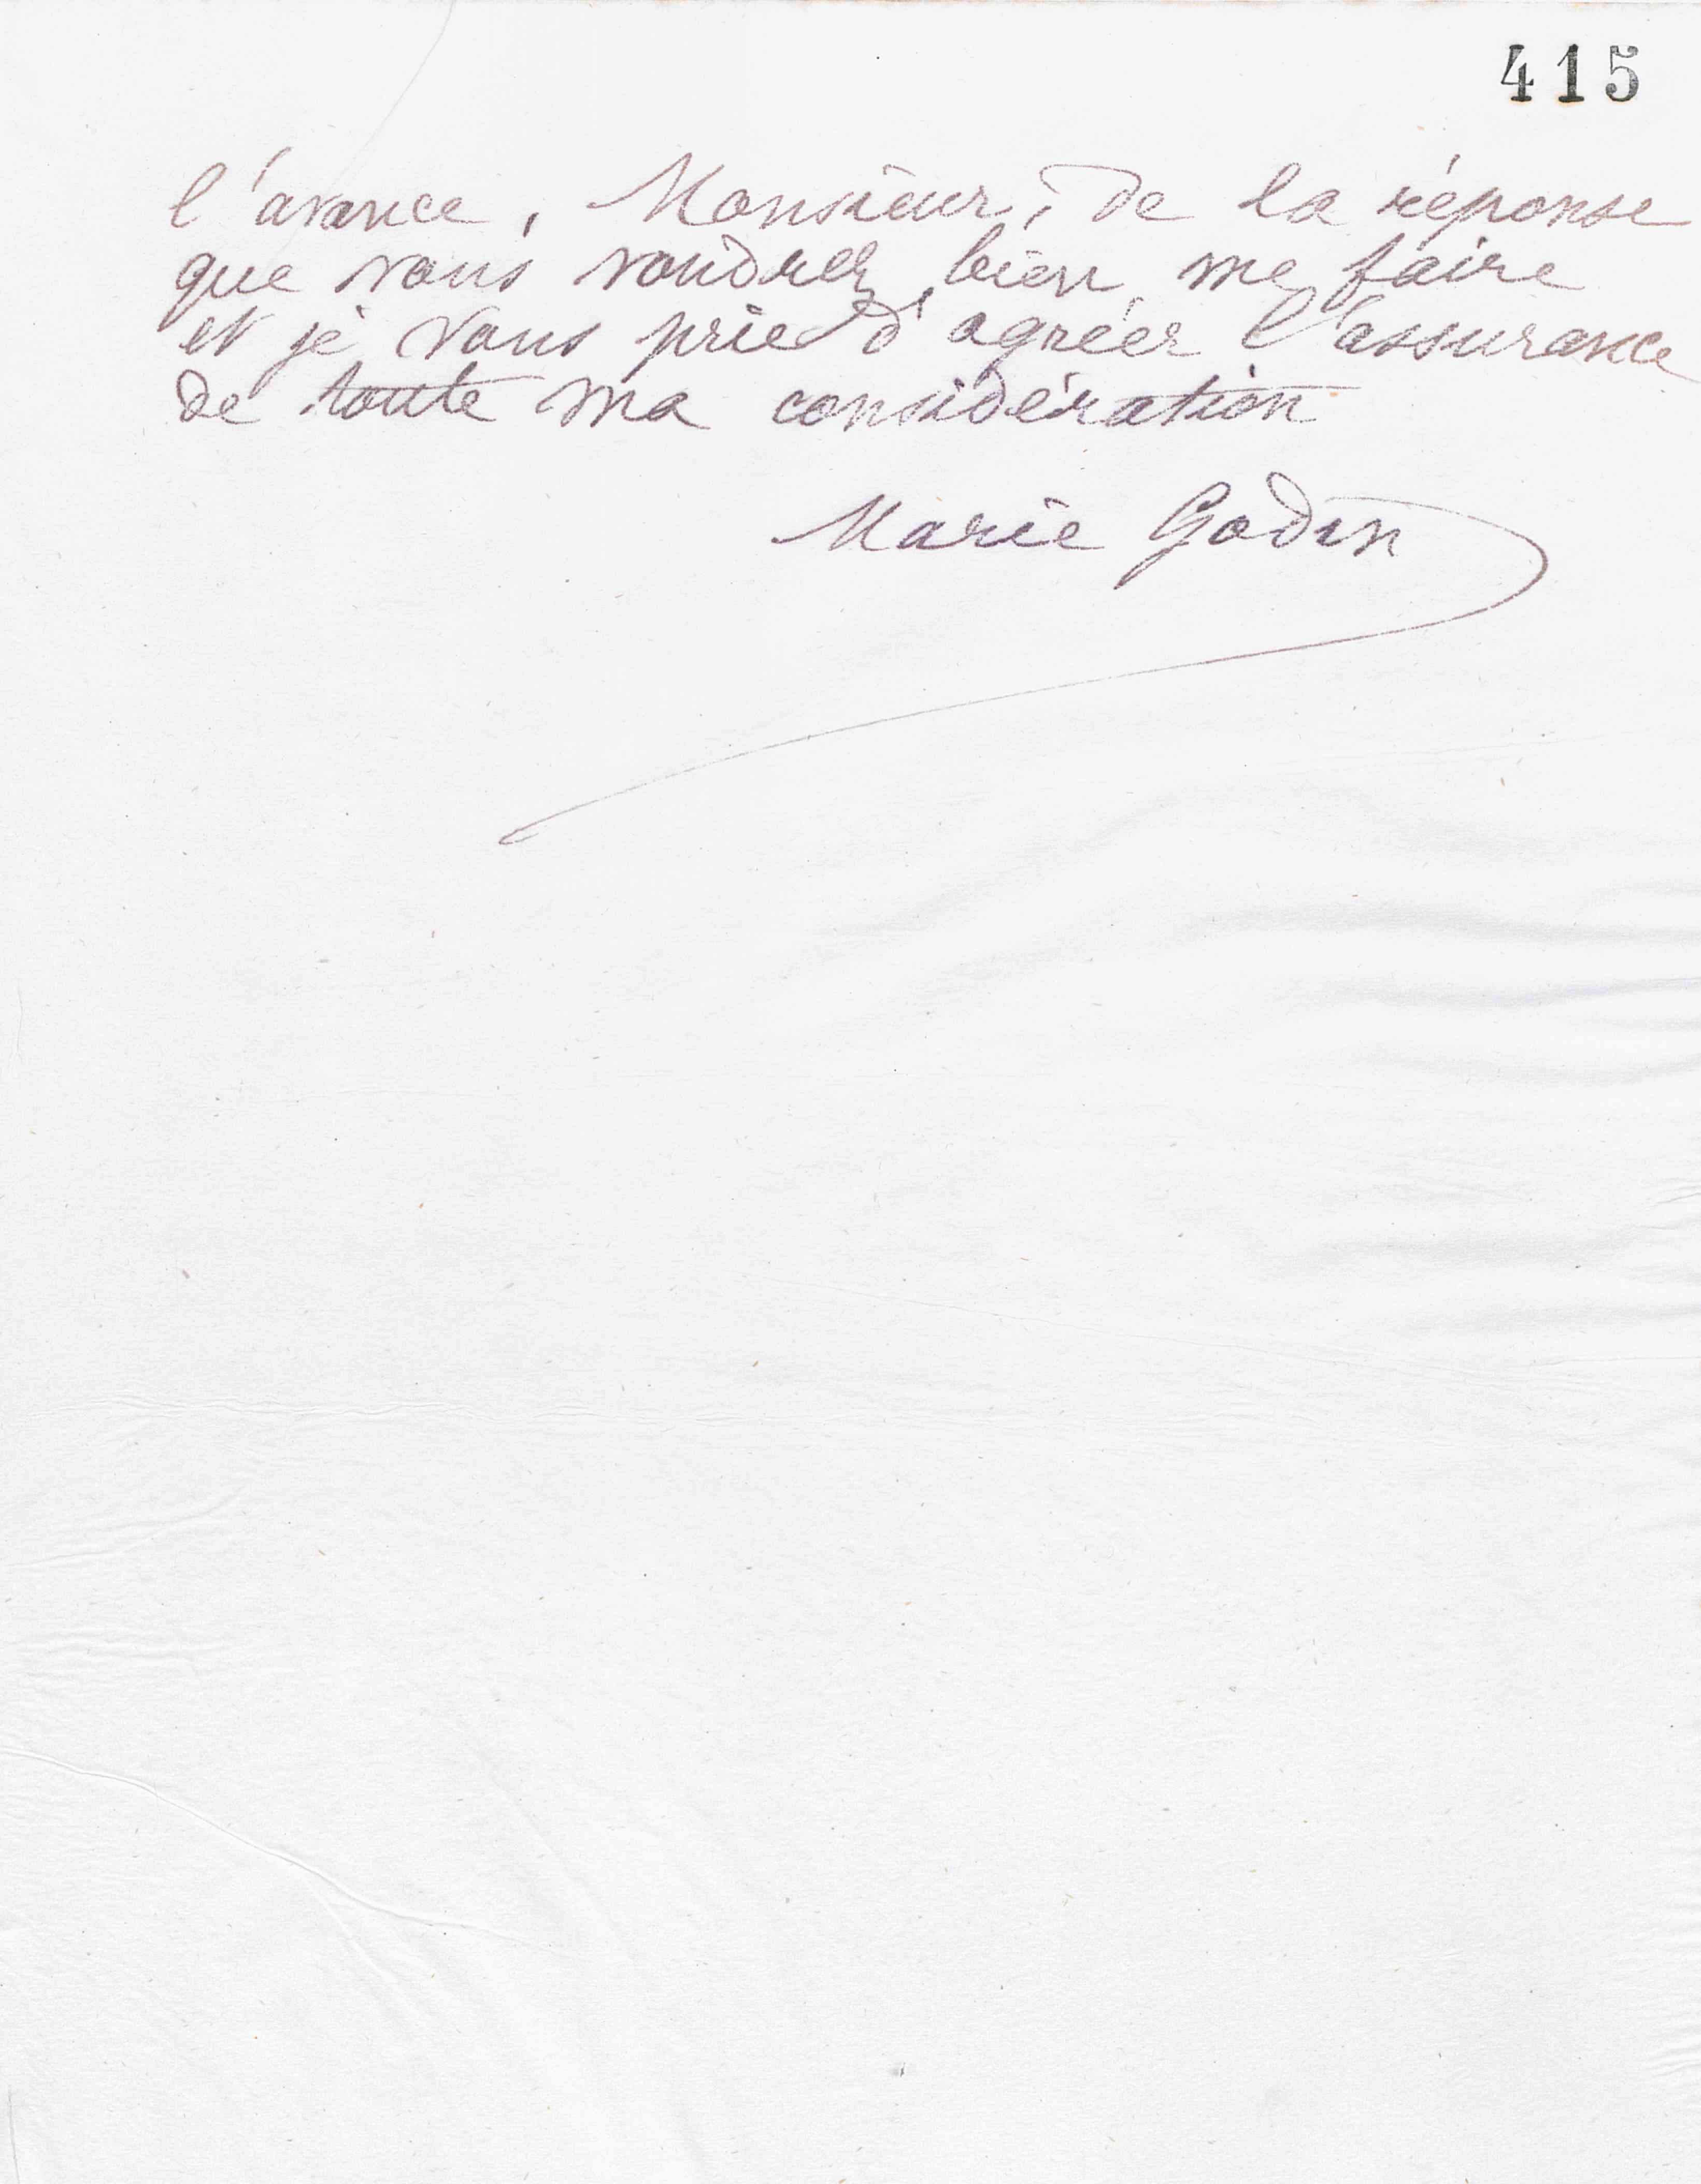 415
l'avance, Monsieur, de la réponse
que vous voudrez bien me faire
et je vous prie d'agréer l'assurance
de toute ma considération
Marie Godin